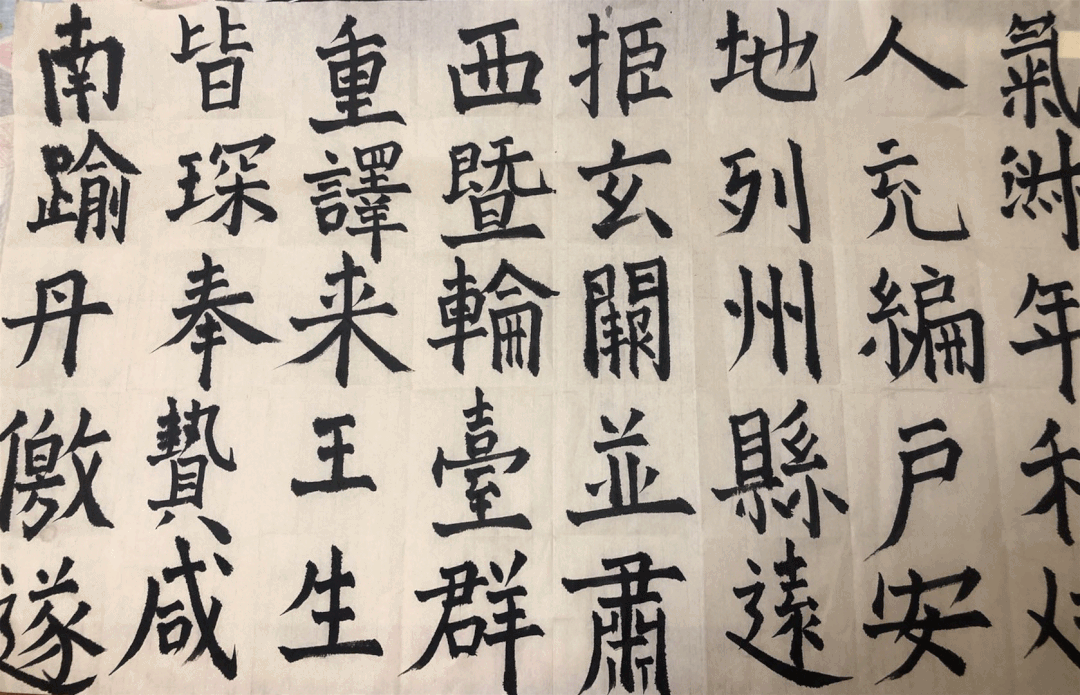 南踰丹儌
皆琛奉贄
重譯来王
西暨輪臺
拒玄闕並
地列州縣
人充編戶
氣淑年和
安遠肅群生咸遂